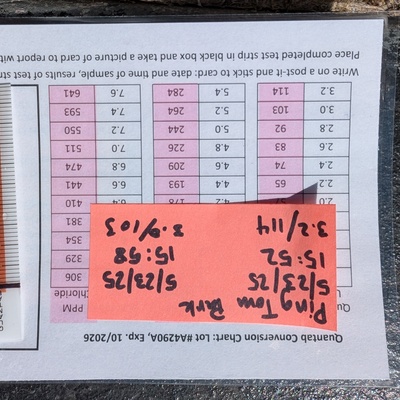 Quantab Conversion Chart: Lot #A4290A, Exp. 10/2026
PPM
Chloride
306
329
354
381
Ping Tom Park
5/23/25 5/23/25
15:52 15:58
3.2/114 3.0/103
2.0 4.2 178 6.4 410
2.2 65 4.4 193 6.6 441
2.4 74 4.6 209 6.8 474
2.6 83 4.8 226 7.0 511
2.8 92 5.0 244 7.2 550
3.0 103 5.2 264 7.4 593
3.2 114 5.4 284 7.6 641
Write on a post-it and stick to card: date and time of sample, results of test
Place completed test strip in black box and take a picture of card to report